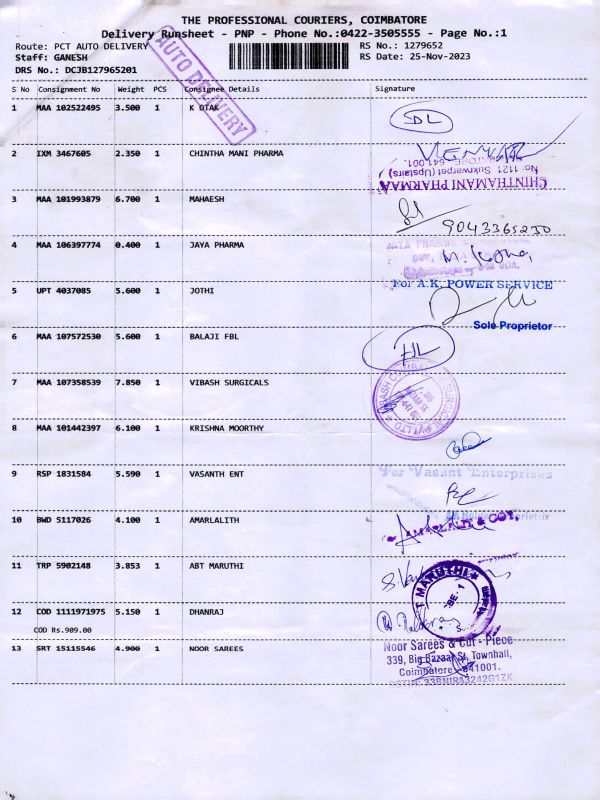 THE PROFESSIONAL COURIERS, COIMBATORE
Delivery Runsheet - PNP - Phone No.:0422-3505555 - Page No.:1
Route: PCT AUTO DELIVERY
RS No.: 1279652
Staff: GANESH
RS Date: 25-Nov-2023
DRS No.: DCJB127965201
AUTO DELIVERY
S No Consignment No Weight PCS Consignee Details Signature
1 MAA 102522495 3.500 1 K OTAK SDL
2 IXM 3467605 2.350 1 CHINTHA MANI PHARMA
CHINTHAMANI PHARMAA
No: 1121, Sukrwarpet (Upstairs)
641 001.
3 MAA 101993879 6.700 1 MAHAESH
9043365230
4 MAA 106397774 0.400 1 JAYA PHARMA
5 UPT 4037085 5.600 1 JOTHI
For A.K. POWER SERVICE
Sole Proprietor
6 MAA 107572530 5.600 1 BALAJI FBL
7 MAA 107358539 7.850 1 VIBASH SURGICALS
8 MAA 101442397 6.100 1 KRISHNA MOORTHY
9 RSP 1831584 5.590 1 VASANTH ENT
For Vasant Enterprises
10 BWD 5117026 4.100 1 AMARLALITH
11 TRP 5902148 3.853 1 ABT MARUTHI
MARUTHI
12 COD 1111971975 5.150 1 DHANRAJ
COD Rs.909.00
13 SRT 15115546 4.900 1 NOOR SAREES
Noor Sarees & Cut - Piece
339, Big Bazaar St, Townhall,
Coimbatore - 641001.